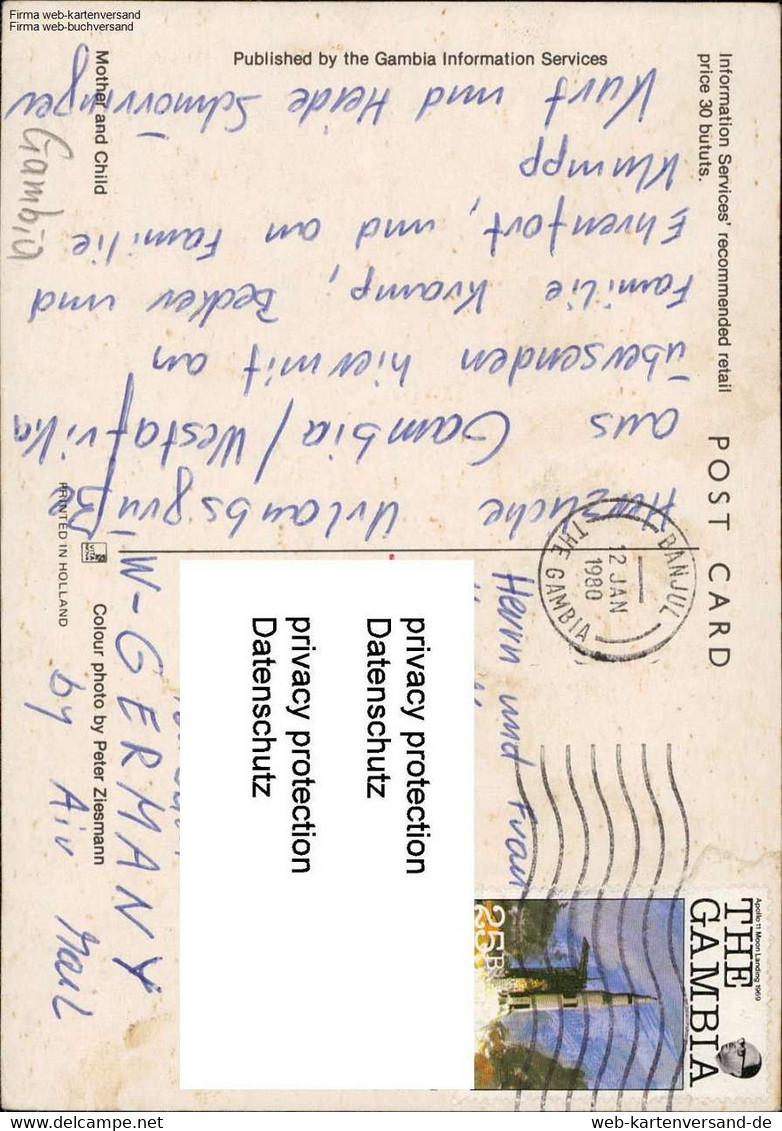 Firma web-kartenversand
Firma web-buchversand
Information Services' recommended retail
price 30 bututs.
POST CARD
Published by the Gambia Information Services
Mother and Child
Gambia
Herzliche Urlaubsgrüße
aus Gambia/Westafrika
übersenden hiermit an
Familie Kramp, Becker und
Ehrenfort, und an Familie
Klumpp
Kurt und Heide
BANJUL
12 JAN
1980
THE GAMBIA
Apollo 11 Moon Landing 1969
THE
GAMBIA
25B
Herrn und Frau
privacy protection
Datenschutz
privacy protection
Datenschutz
W-GERMANY
by Air Mail
Colour photo by Peter Ziesmann
PRINTED IN HOLLAND
web-kartenversand-de